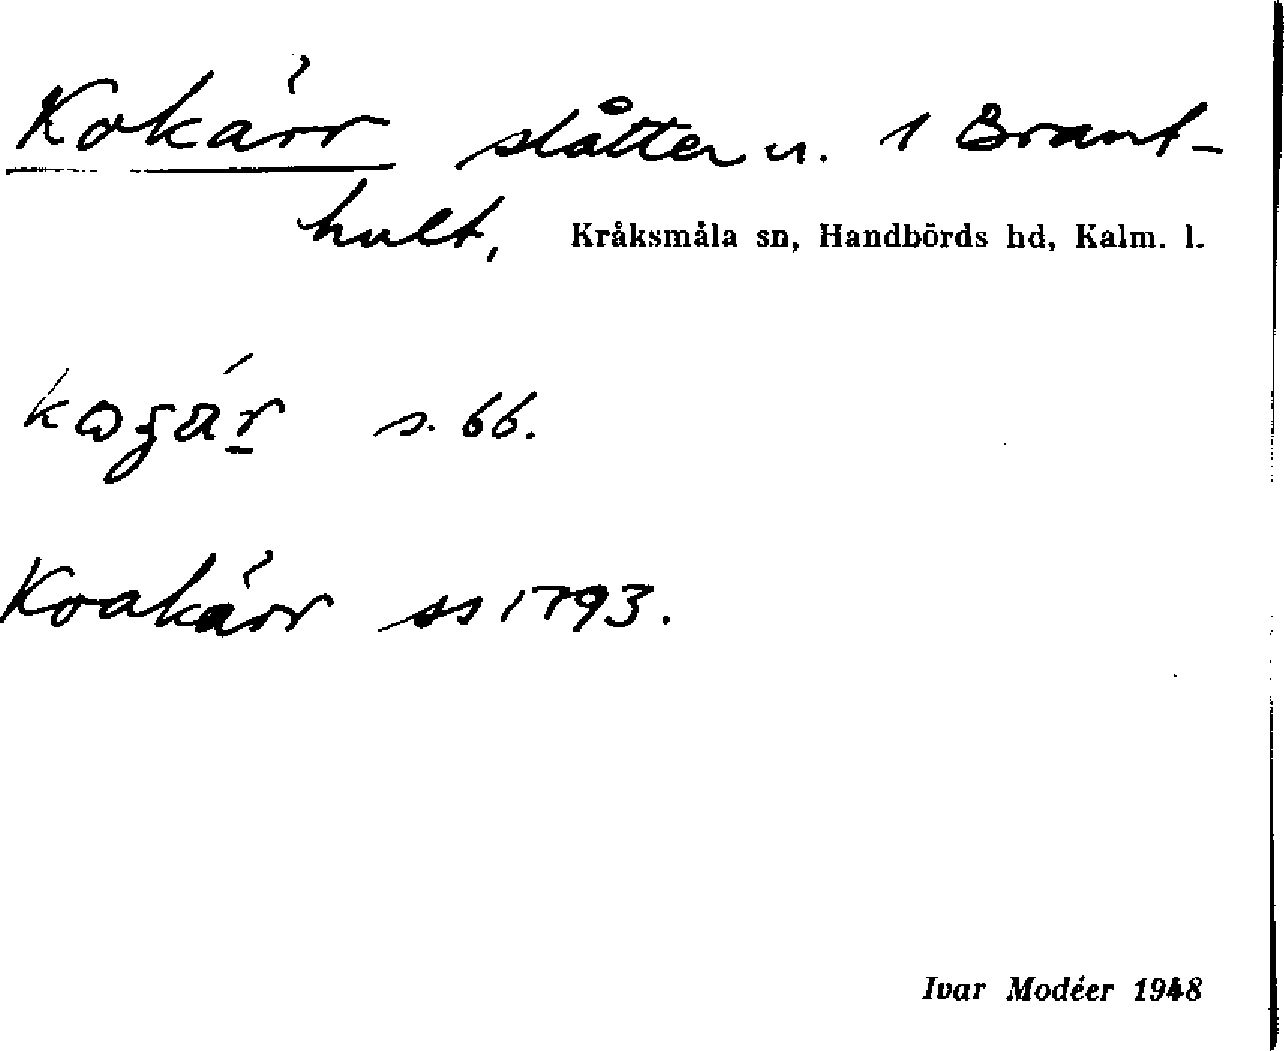 Kokärr slåtter u. 1 Brant-
hult, Kråksmåla sn, Handbörds hd, Kalm. l.
s. 66.
Koakärr ss 1793.
Ivar Modéer 1948